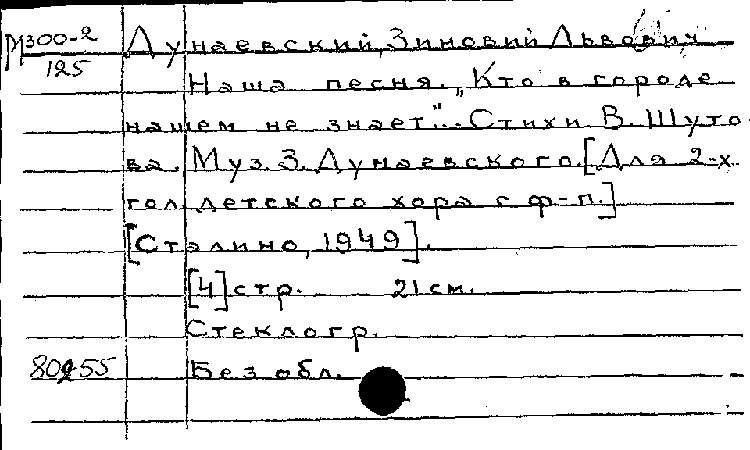 М300-2 Дунаевский, Зиновий Львович
125
Наша песня. „Кто в городе
нашем не знает"... Стихи В. Шуто-
ва. Муз. З. Дунаевского. [Для 2-х
гол. детского хора с ф-п.]
[Сталино, 1949].
[4] стр. 21 см.
Стеклогр.
80255 Без обл.